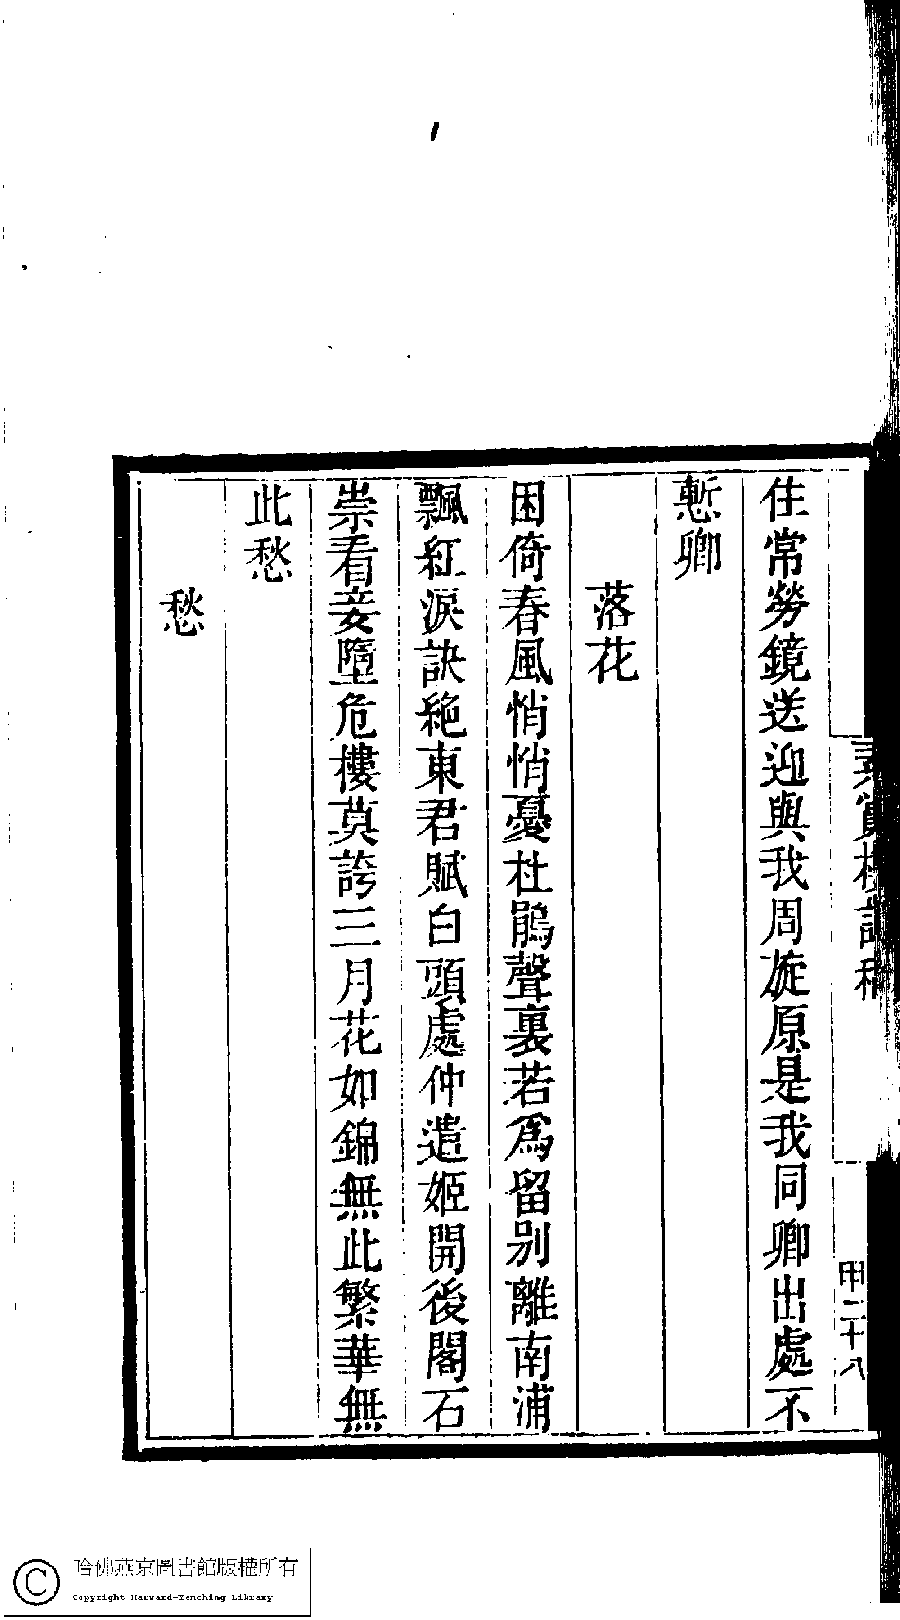 住常勞鏡送迎與我周旋原是我同卿出處不
慙卿
落花
困倚春風悄悄憂杜鵑聲裏若爲留别離南浦
飄紅淚訣絶東君賦白頭處仲遣姬開後閣石
崇看妾墮危樓莫誇三月花如錦無此繁華無
此愁
愁
甲二十八
哈佛燕京圖書館版權所有
Copyright Harvard-Yenching Library